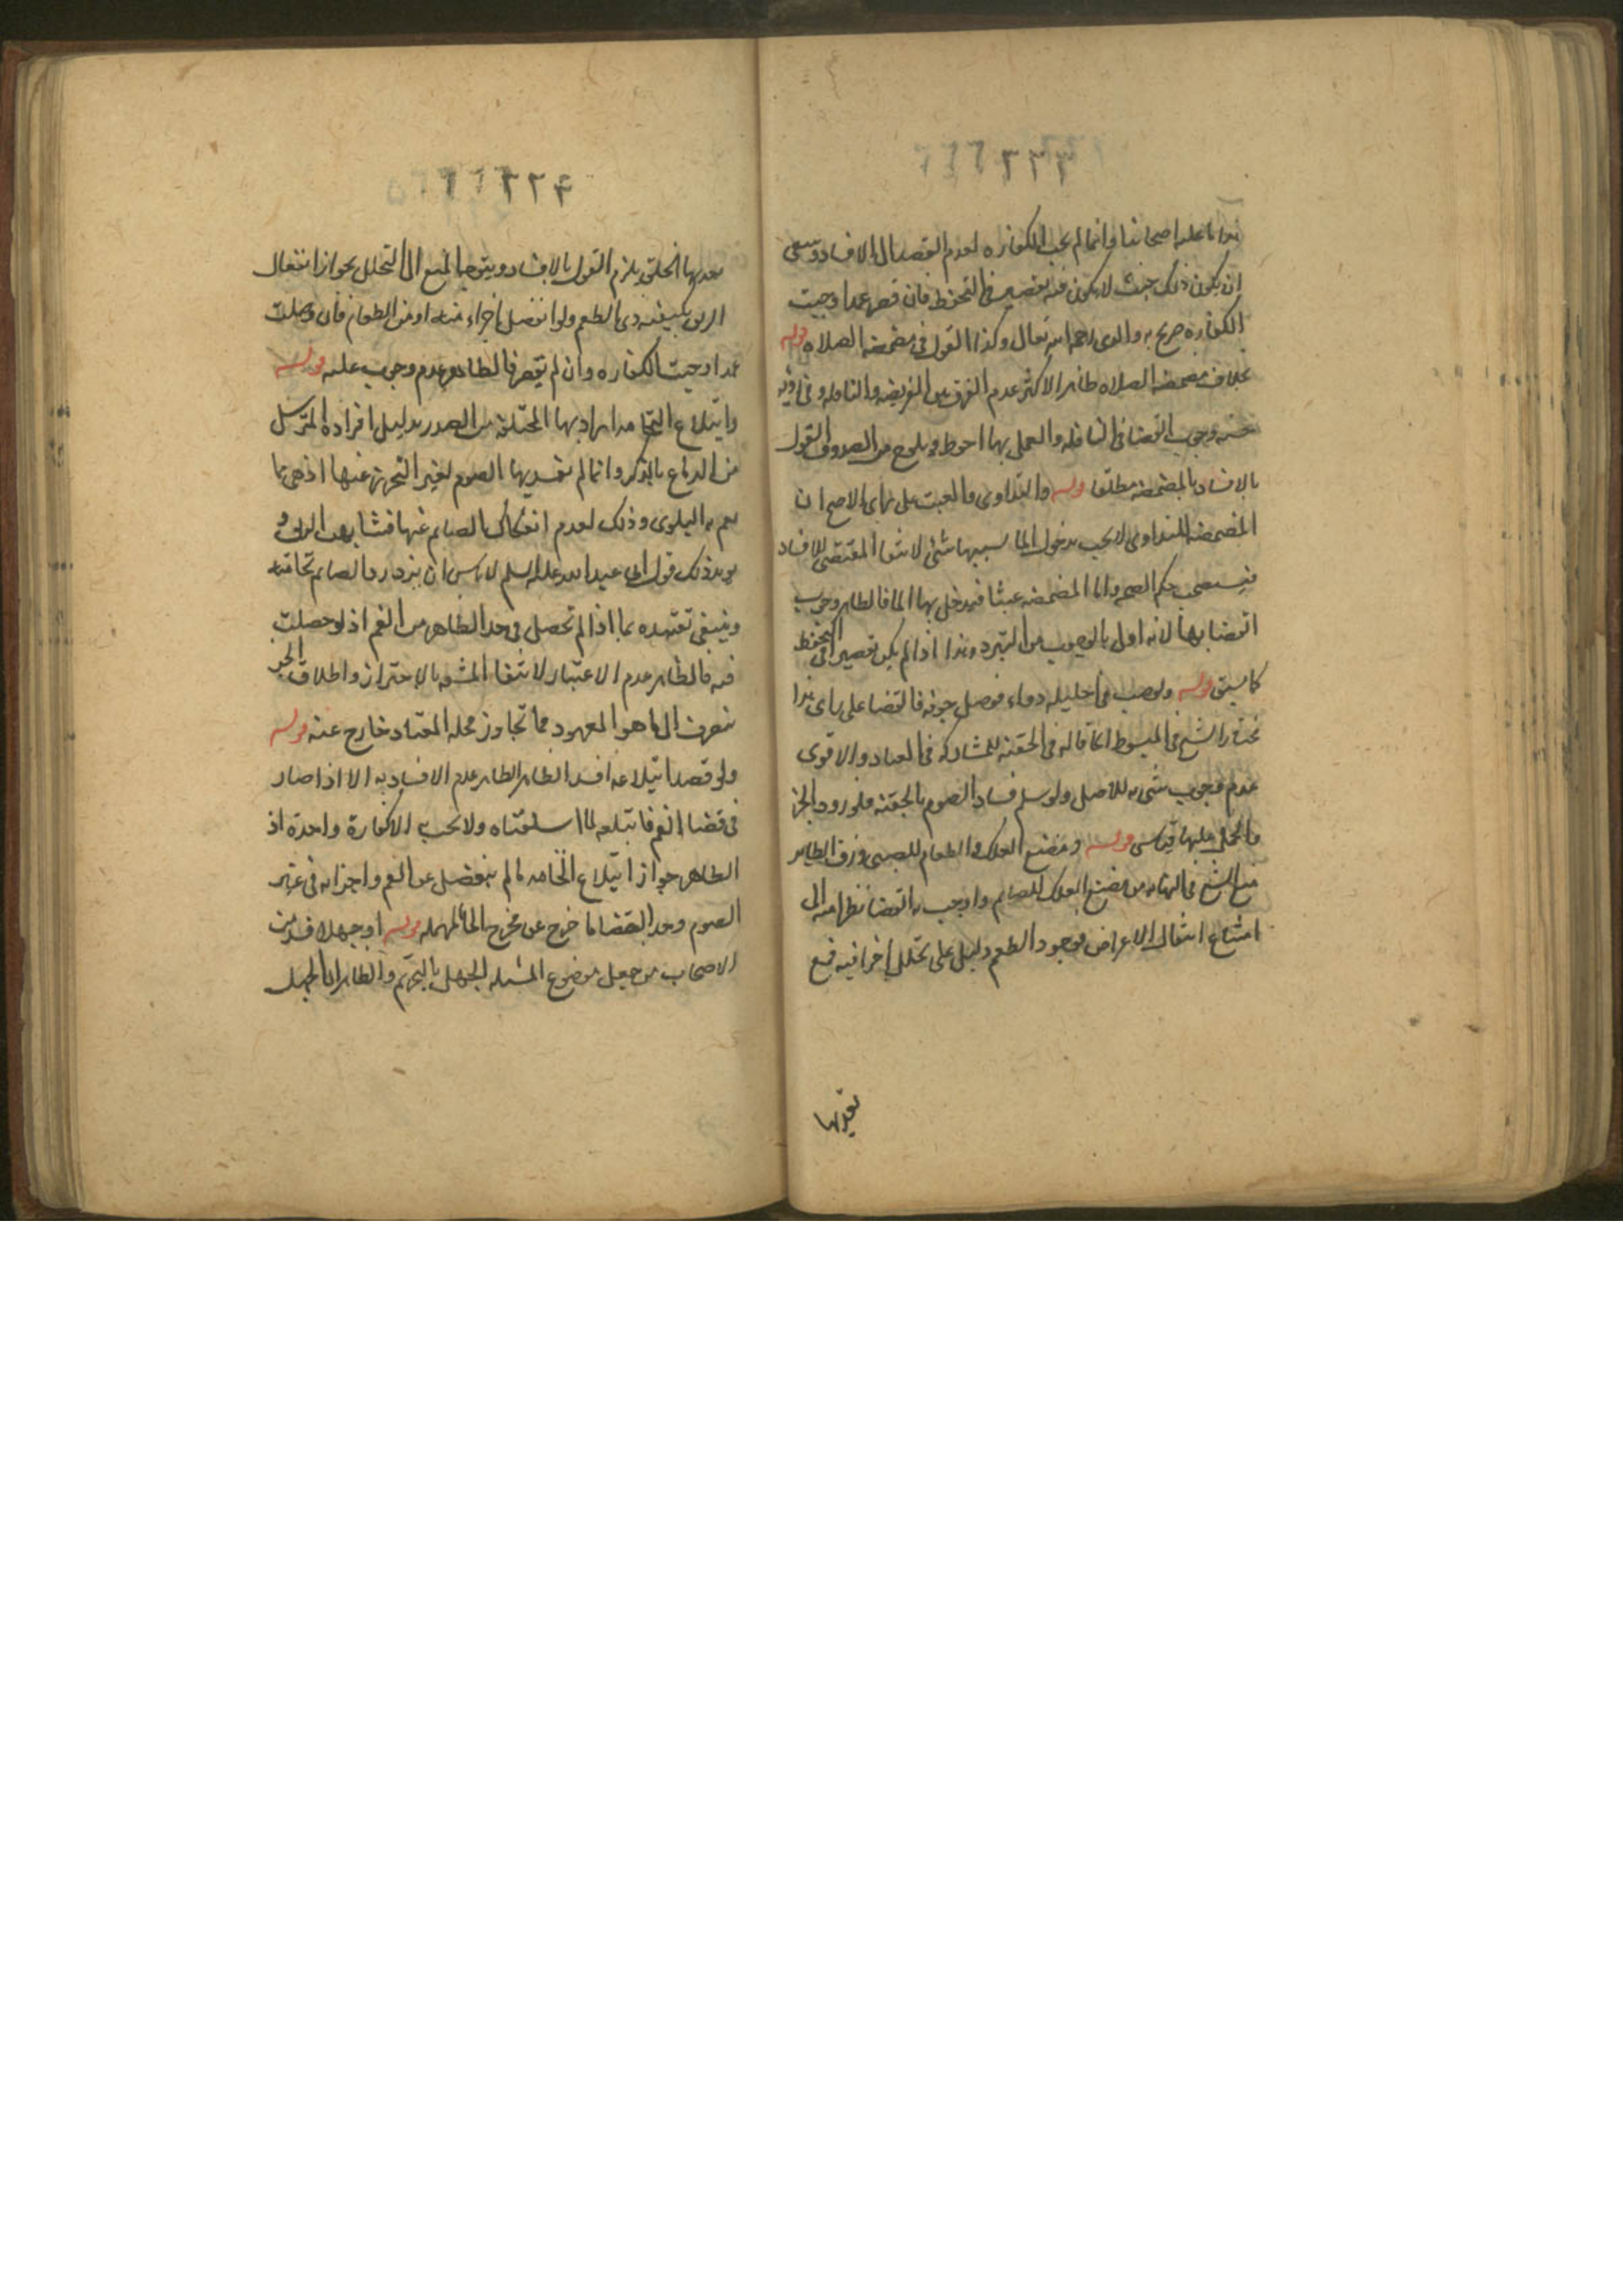 ٢٢٣
هذا ما عليه اصحابنا وانما لم يجب الكفاره لعدم القصد الى الافساد وينبغى
ان يكون ذلك حيث لا يكون منه تقصير فى التحفظ فان قصر عمدا وجبت
الكفاره صرح به والدى رحمه الله تعالى وكذا القول فى مضمضه الصلاه قوله
بخلاف مضمضه الصلاه ظاهر الاكثر عدم الفرق بين الفريضه والنافله وفى روايه
حسنه وجوب القضا فى النافله والعمل بها احوط ويلوح من الصدوق القول
بالافساد بالمضمضه مطلقا قوله والتداوى والعبث على راى الاصح ان
المضمضه للتداوى لا يجب بدخول الما بسببها شئ لانتفا المقتضى للافساد
فيستصحب حكم الصحه واما المضمضه عبثا فيدخل بها الما فالظاهر وجوب
القضا بها لانه اولى بالوجوب من التبرد وهذا اذا لم يكن تقصير فى التحفظ
كما سبق قوله ولو صب فى احليله دواء فوصل جوفه فالقضا على راى هذا
مختار الشيخ فى المبسوط كما قاله فى الحقنه للمشاركه فى العباد والاقوى
عدم وجوب شى به للاصل ولو سلم فساد الصوم بالحقنه فلورود الخبر
والحمل عليها قياس قوله ومضغ العلك والطعام للصبى وزق الطاير
منع الشيخ فى النهايه من مضغ العلك للصايم واوجب به القضا نظرا منه الى
امتناع انتقال الاعراض فوجود الطعم دليل على تحلل اجزا فيه فمع
تعديها
٢٢٤
تعديها الحلق يلزم القول بالافساد ويتوجه المنع الى التحلل بجواز انفعال
الريق بكيفيه ذى الطعم ولو انفصل اجزاء منه او من الطعام فان وصلت
عمدا وجبت الكفاره وان لم يقصر فالظاهر عدم وجوب عليه قوله
وابتلاع النخامه المراد بها المجتلبه من الصدر بدليل افراده المسترسل
من الدماغ بالذكر وانما لم يفسد بها الصوم لعسر التحرز عنها اذ هى مما
يعم به البلوى وذلك لعدم انفكاك الصايم عنها فتشابهت الريق و
يويد ذلك قول ابى عبد الله عليه السلم لا باس ان يزدرد الصايم نخامته
وينبغى تقييده بما اذا لم تحصل فى حد الظاهر من الفم اذ لو حصلت
فيه فالظاهر عدم الاعتبار لانتفا المشقه بالاحتراز واطلاق الخبر
ينصرف الى ما هو المعهود فما تجاوز محله المعتاد خارج عنه قوله
ولو قصد ابتلاعه افسد الظاهر الظاهر عدم الافساد به الا اذا صار
فى فضا الفم فابتلعه لما اسلفناه ولا يجب الا كفارة واحدة اذ
الظاهر جواز ابتلاع النخامه ما لم ينفصل عن الفم واجزائه فى غير
الصوم وحد الفضا ما خرج عن مخرج الحا المهمله قوله او جهلا قد من
الاصحاب من جعل موضوع المسئله الجهل بالتحريم والظاهر ان الجهل